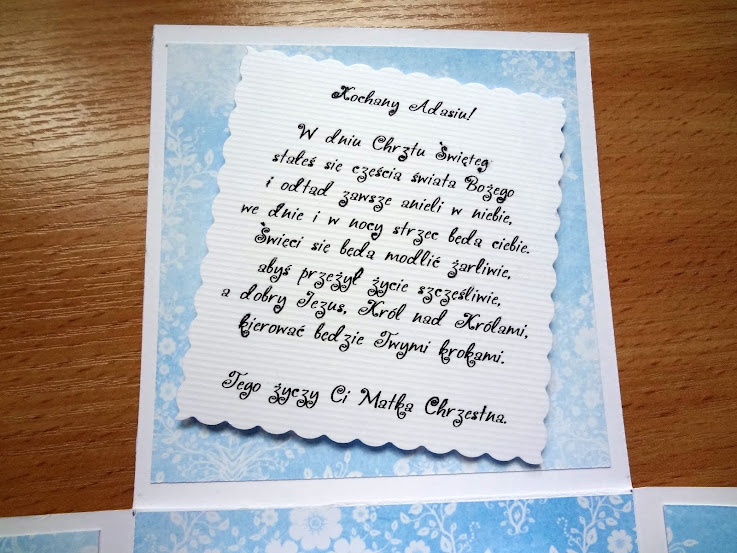 Kochany Adasiu!
W dniu Chrztu Święteg
stałeś się częścią świata Bożego
i odtąd zawsze anieli w niebie,
we dnie i w nocy strzec będą ciebie.
Święci się będą modlić żarliwie,
abyś przeżył życie szczęśliwie,
a dobry Jezus, Król nad Królami,
kierować będzie Twymi krokami.
Tego życzy Ci Matka Chrzestna.